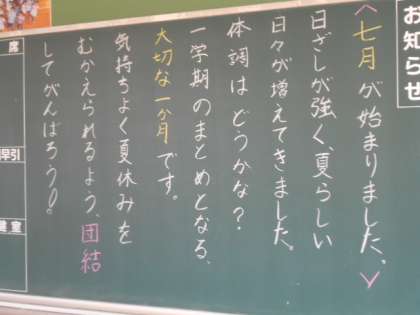 お知らせ
七月が始まりました。
日ざしが強く、夏らしい
日々が増えてきました。
体調はどうかな？
一学期のまとめとなる、
大切な一か月です。
気持ちよく夏休みを
むかえられるよう、団結
してがんばろう！
席
早引